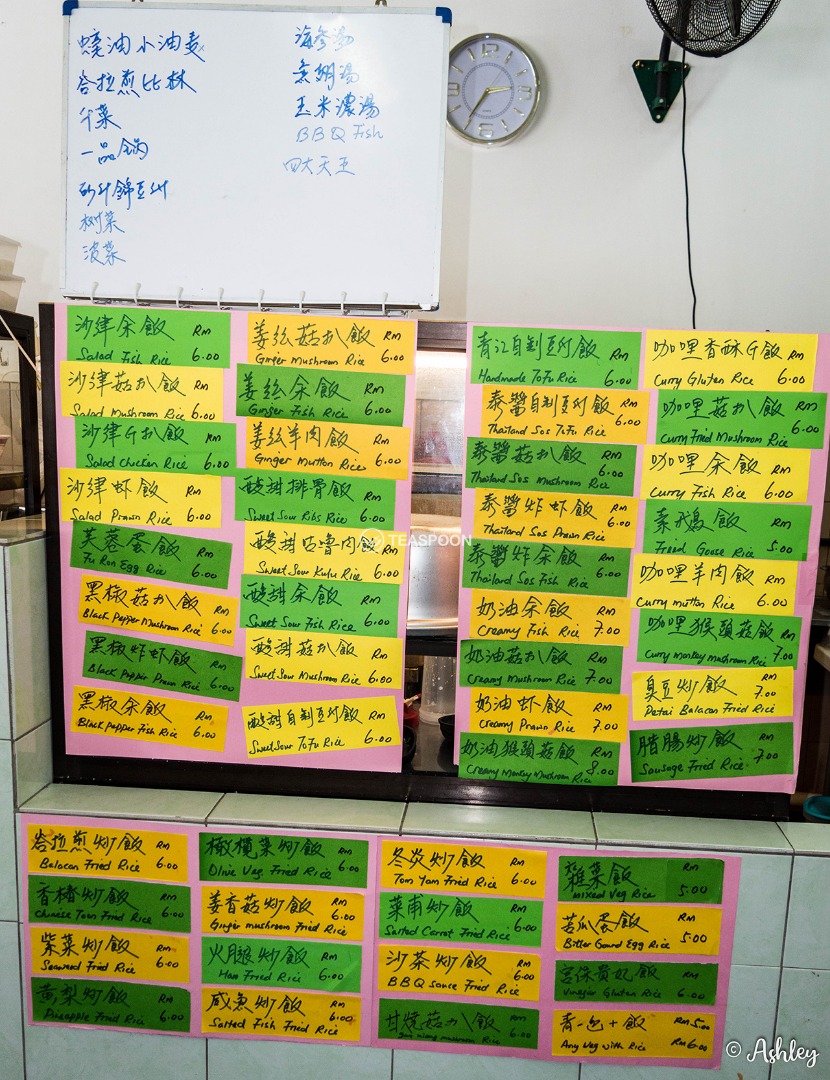 小油麦
海参汤
羔拉煎
玉米濃湯
BBQ Fish
四大天王
一品锅
菠菜
沙律余飯 RM
Salad Fish Rice 6.00
沙律菇扒飯 RM
Salad Mushroom Rice 6.00
沙律 扒飯 RM
Salad Chicken Rice 6.00
沙律虾飯 RM
Salad Prawn Rice 6.00
芙蓉蛋飯 RM
Fu Ron Egg Rice 6.00
黑椒菇扒飯 RM
Black Pepper Mushroom Rice 6.00
黑椒炸虾飯 RM
Black Pepper Prawn Rice 6.00
黑椒余飯 RM
Black Pepper Fish Rice 6.00
姜丝菇扒飯 RM
Ginger Mushroom Rice 6.00
姜丝余飯 RM
Ginger Fish Rice 6.00
姜丝羊肉飯 RM
Ginger Mutton Rice 6.00
酸甜排骨飯 RM
Sweet Sour Ribs Rice 6.00
酸甜咕嚕肉飯 RM
Sweet Sour Kulu Rice 6.00
酸甜余飯 RM
Sweet Sour Fish Rice 6.00
酸甜菇扒飯 RM
Sweet Sour Mushroom Rice 6.00
酸甜自制豆付飯 RM
Sweet Sour ToFu Rice 6.00
TEASPOON
青江自制豆付飯 RM
Handmade ToFu Rice 6.00
泰醬自制豆付飯 RM
Thailand Sos ToFu Rice 6.00
泰醬菇扒飯 RM
Thailand Sos Mushroom Rice 6.00
泰醬炸虾飯 RM
Thailand Sos Prawn Rice 6.00
泰醬炸余飯 RM
Thailand Sos Fish Rice 6.00
奶油余飯 RM
Creamy Fish Rice 7.00
奶油菇扒飯 RM
Creamy Mushroom Rice 7.00
奶油虾飯 RM
Creamy Prawn Rice 7.00
奶油猴頭菇飯 RM
Creamy Monkey Mushroom Rice 8.00
咖哩香酥 飯 RM
Curry Gluten Rice 6.00
咖哩菇扒飯 RM
Curry Fried Mushroom Rice 6.00
咖哩余飯 RM
Curry Fish Rice 6.00
素飛鵝飯 RM
Fried Goose Rice 5.00
咖哩羊肉飯 RM
Curry Mutton Rice 6.00
咖哩猴頭菇飯 RM
Curry Monkey Mushroom Rice 7.00
臭豆炒飯 RM
Petai Balacan Fried Rice 7.00
腊腸炒飯 RM
Sausage Fried Rice 7.00
峇拉煎炒飯 RM
Balacan Fried Rice 6.00
香椿炒飯 RM
Chinese Toon Fried Rice 6.00
紫菜炒飯 RM
Seaweed Fried Rice 6.00
黄梨炒飯 RM
Pineapple Fried Rice 6.00
橄欖菜炒飯 RM
Olive Veg Fried Rice 6.00
姜香菇炒飯 RM
Ginger Mushroom Fried Rice 6.00
火腿炒飯 RM
Ham Fried Rice 6.00
咸魚炒飯 RM
Salted Fish Fried Rice 6.00
冬炎炒飯 RM
Tom Yam Fried Rice 6.00
菜甫炒飯 RM
Salted Carrot Fried Rice 6.00
沙茶炒飯 RM
BBQ Sauce Fried Rice 6.00
甘燒菇扒飯 RM
mushroom Rice 6.00
雜菜飯 RM
mixed Veg Rice 5.00
苦瓜蛋飯 RM
Bitter Gourd Egg Rice 5.00
宮保貴妃飯 RM
Vinegar Gluten Rice 6.00
青一色+飯 RM 5.00
Any Veg with Rice RM 6.00
© Ashley